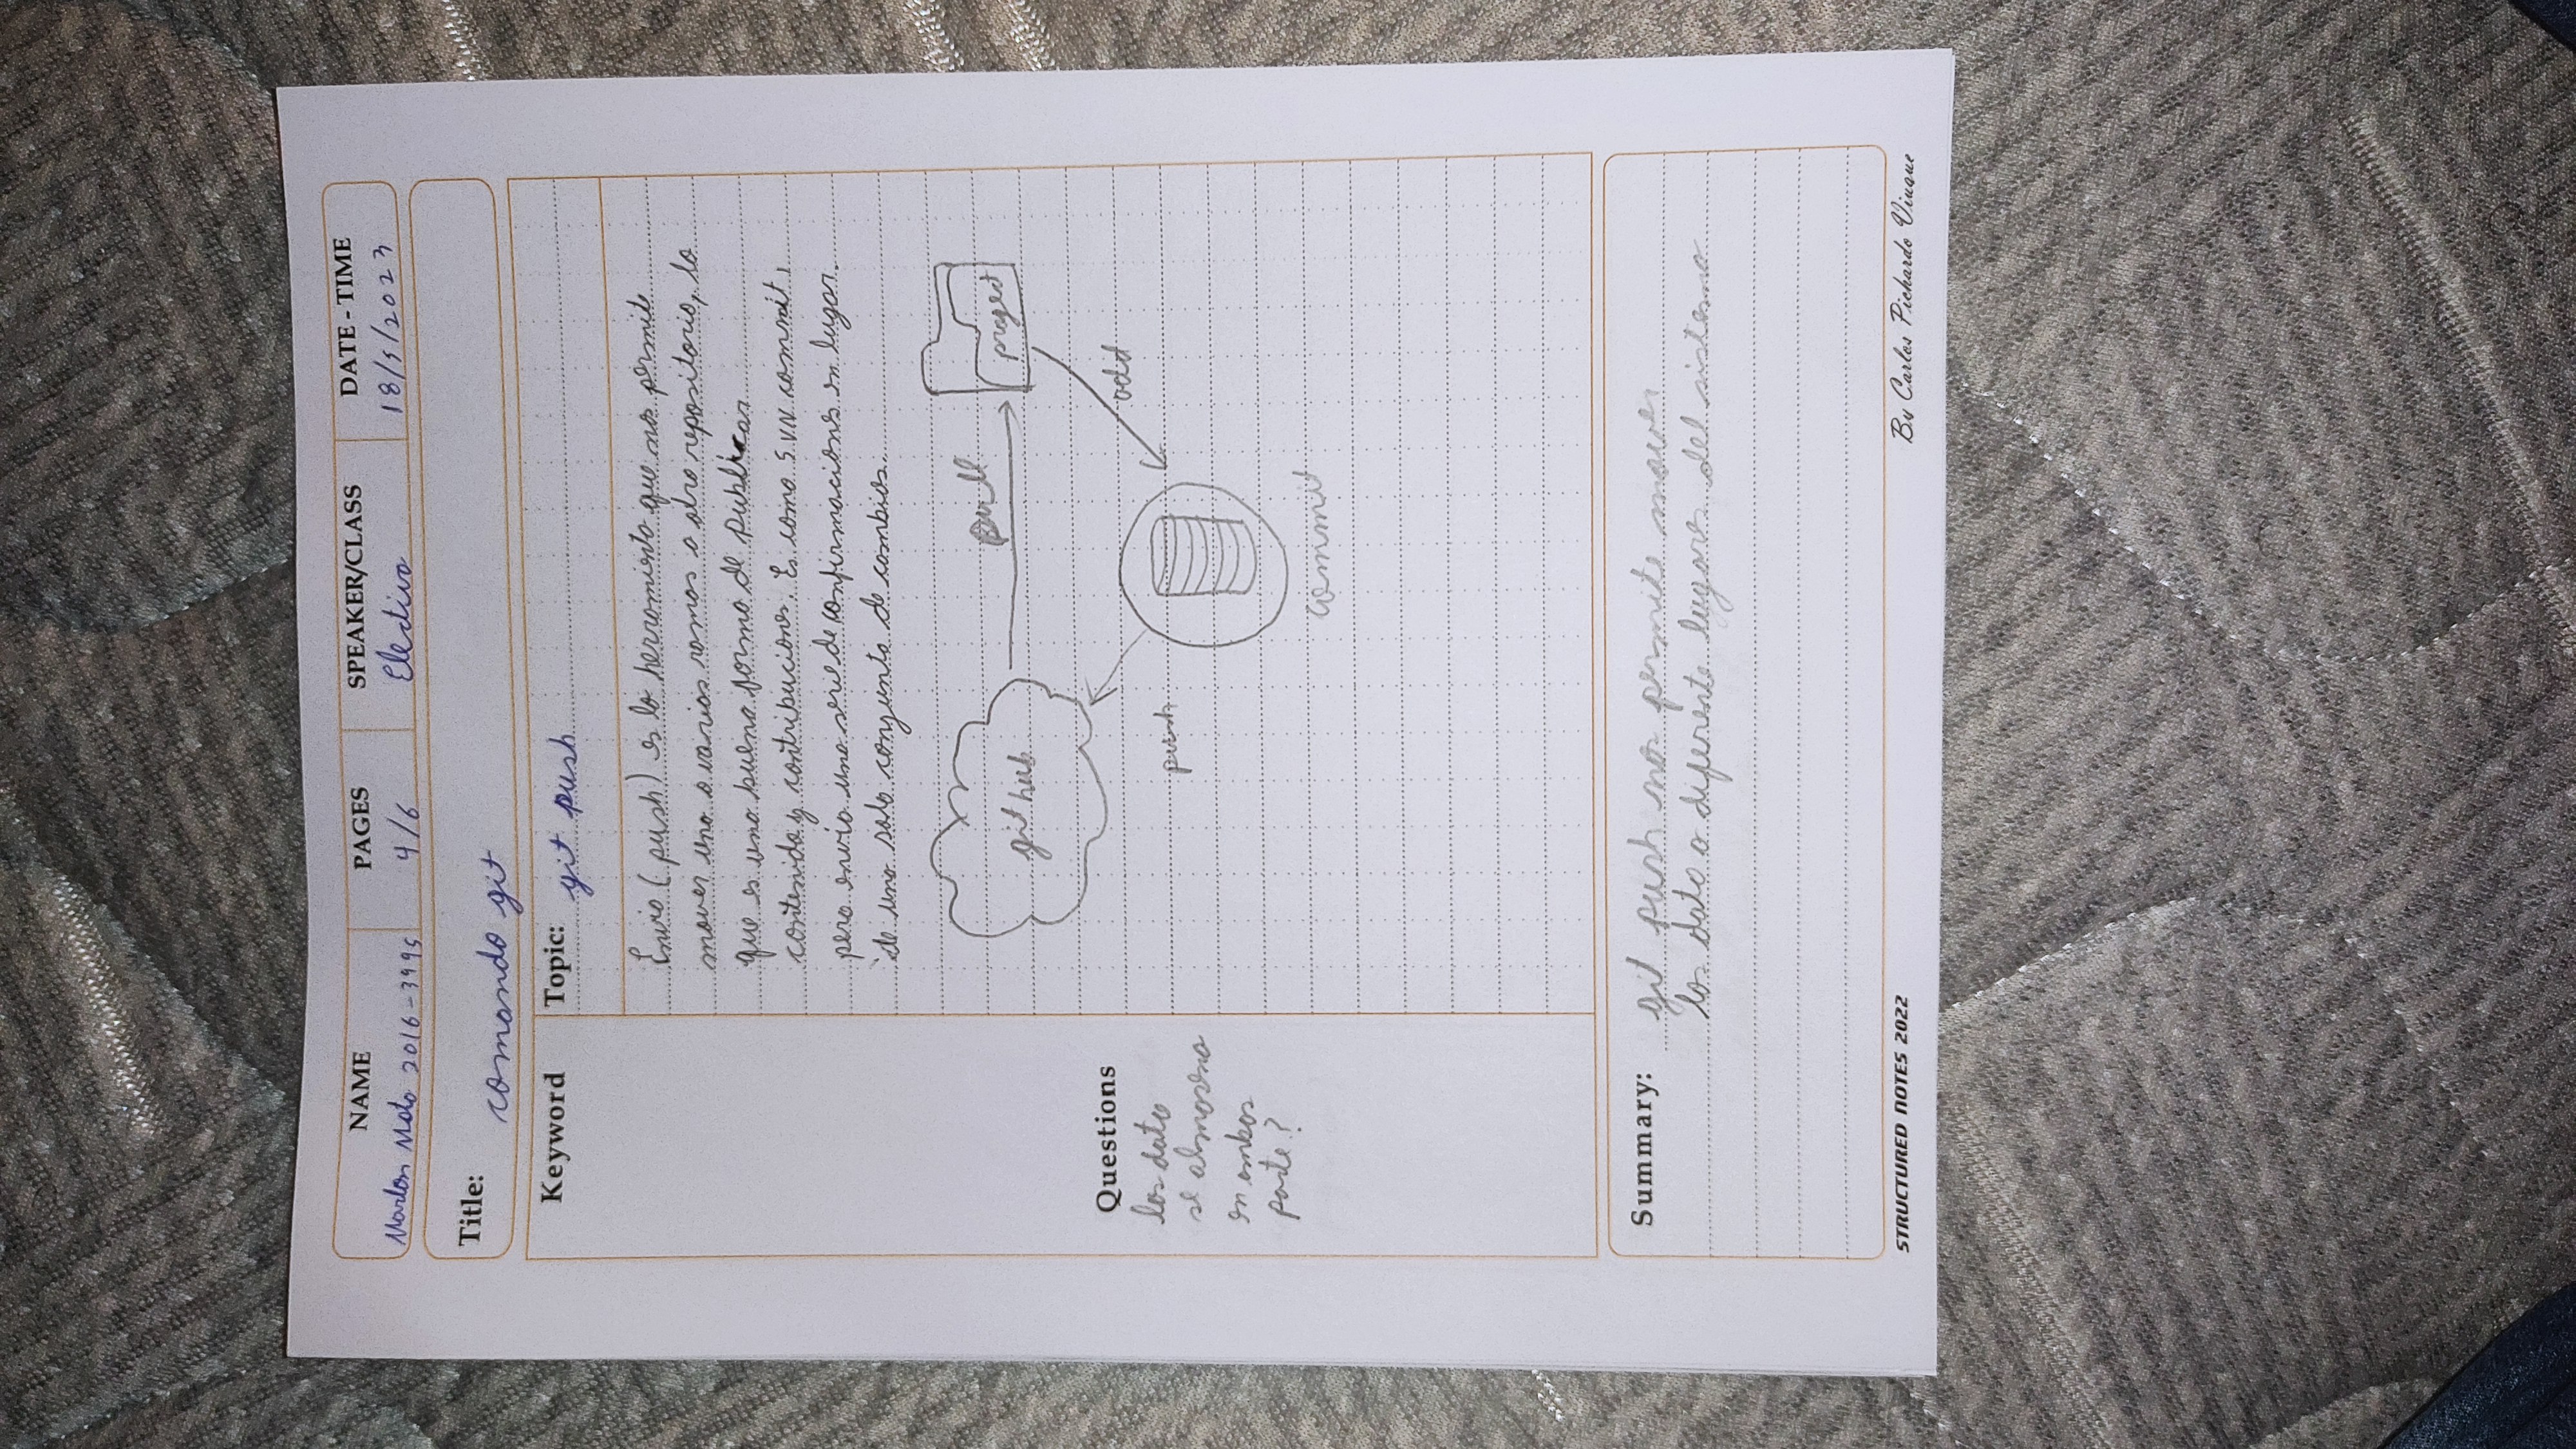 NAME PAGES SPEAKER/CLASS DATE - TIME
Marlon Mota 2016-3995 4/6 Electiva 18/5/2023
Title: comando git
Keyword
Topic: git push
Envio (push) es la herramienta que nos permite
mover una o varias ramas a otro repositorio, lo
que es una buena forma de publicar
contenido y contribuciones. Es como SVN commit,
pero envia una serie de confirmaciones en lugar
de una solo conjunto de cambios.
git hub
pull
project
add
push
commit
Questions
los dato
se almasena
en ambos
parte?
Summary: git push nos permite mover
los dato a diferente lugares del sistema
STRUCTURED NOTES 2022
By Carlos Pichardo Viuque